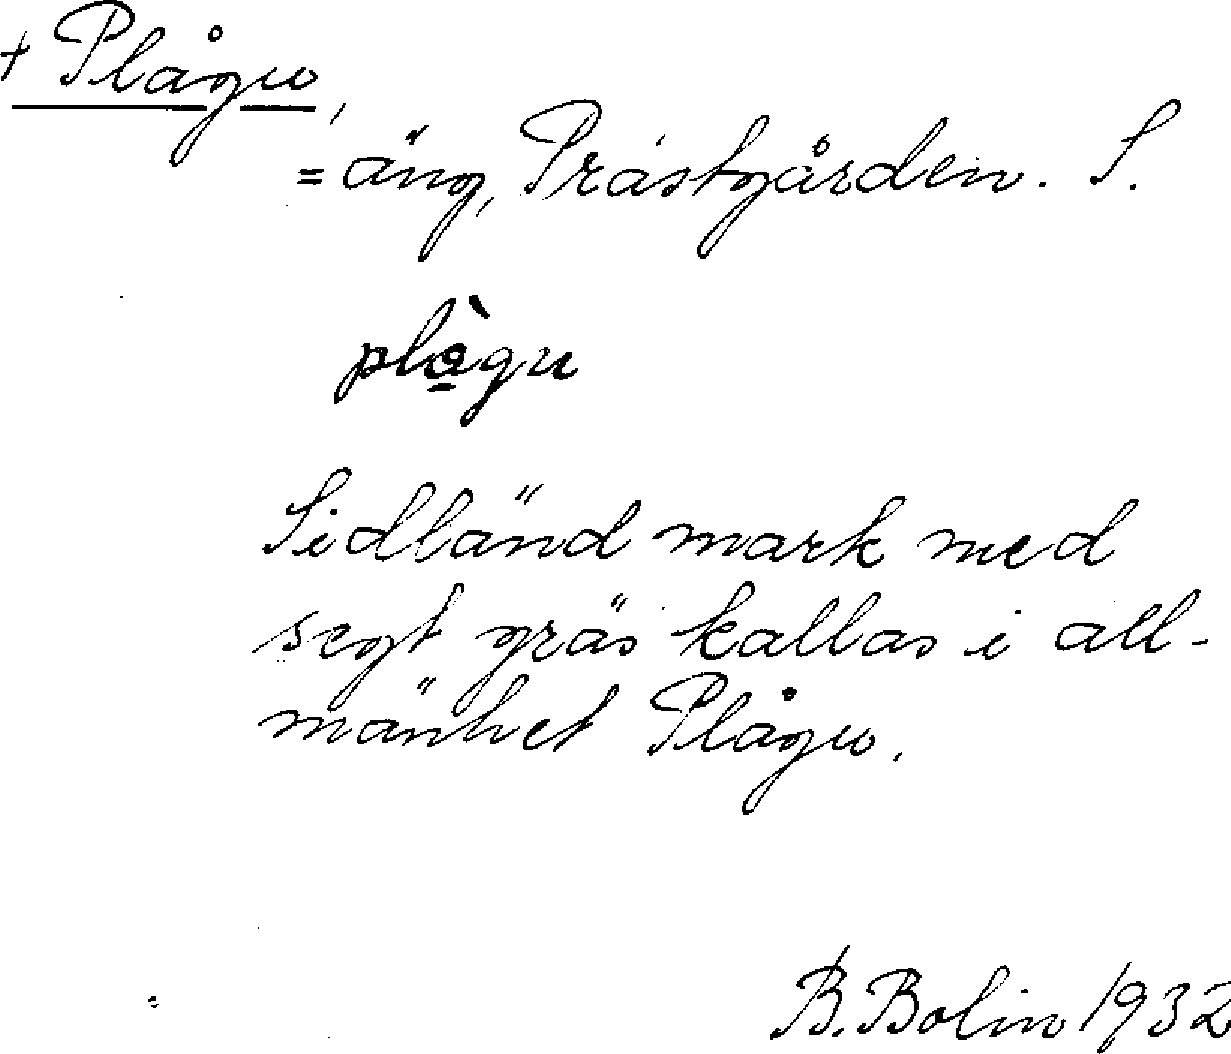 + Plågu,
= äng, Prästgården. S.
plàgu
Sidländ mark med
segt gräs kallas i all-
mänhet Plågu.
B. Bolin 1932